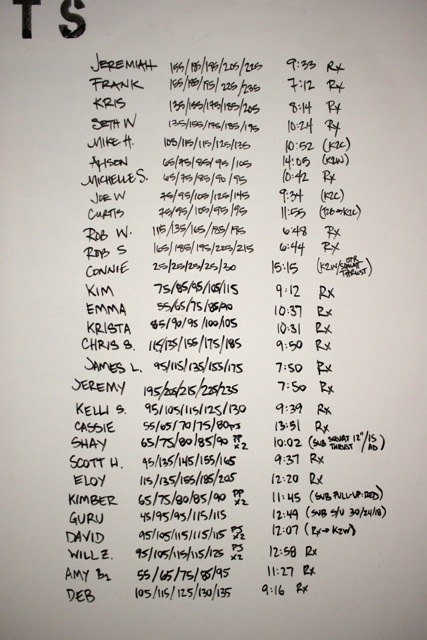 TS
JEREMIAH 155/185/195/205/225 9:33 Rx
FRANK 155/185/195/225/235 7:12 Rx
KRIS 135/155/175/185/205 8:14 Rx
SETH W 135/155/175/185/195 10:24 Rx
MIKE H. 105/115/115/125/135 10:52 (K2C)
ALISON 65/75/85/95/105 14:05 (K2W)
MICHELLE S. 65/75/85/90/95 10:42 Rx
JOE W 75/95/105/125/145 9:34 (K2C)
CURTIS 75/95/105/95/95 11:55 (T2B→K2C)
ROB W. 115/135/165/185/195 6:48 Rx
ROB S 165/185/195/205/215 6:44 Rx
CONNIE 25/25/25/25/30 15:15 (K2W/SQUAT THRUST)
KIM 75/85/95/105/115 9:12 Rx
EMMA 55/65/75/85/90 10:37 Rx
KRISTA 85/90/95/100/105 10:31 Rx
CHRIS S. 115/135/155/175/185 9:50 Rx
JAMES L. 95/115/135/155/175 7:50 Rx
JEREMY 195/205/215/225/235 7:50 Rx
KELLI S. 95/105/115/125/130 9:39 Rx
CASSIE 55/65/70/75/80 13:51 Rx
SHAY 65/75/80/85/90 PP x2 10:02 (SUB SQUAT THRUST 12"/15 AD)
SCOTT H. 95/135/145/155/165 9:37 Rx
ELOY 115/135/155/185/205 12:20 Rx
KIMBER 65/75/80/85/90 PP x2 11:45 (SUB PULL-UP: RED)
GURU 45/95/95/115/115 12:49 (SUB S/U 30/24/18)
DAVID 95/105/115/115/115 PS x2 12:07 (Rx→K2W)
WILL Z. 95/105/115/115/125 PS x2 12:58 Rx
AMY B2 55/65/75/85/95 11:27 Rx
DEB 105/115/125/130/135 9:16 Rx